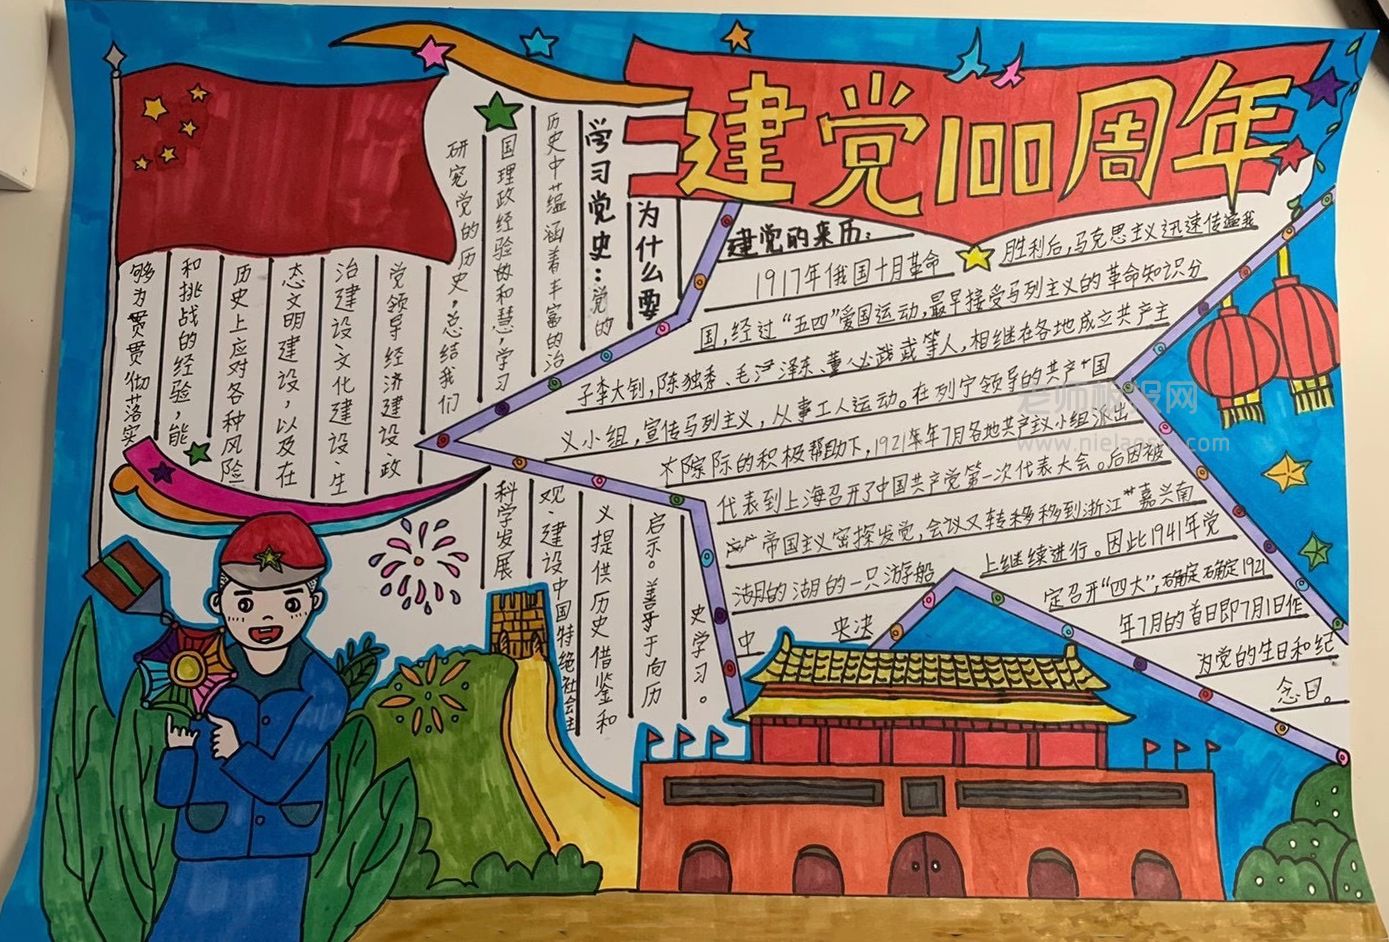 建党100周年
建党的来历:
1917年俄国十月革命
胜利后,马克思主义迅速传遍我
国,经过“五四”爱国运动,最早接受马列主义的革命知识分
子李大钊,陈独秀、毛泽东、董必武等人,相继在各地成立共产主
义小组,宣传马列主义,从事工人运动。在列宁领导的共产国
际的积极帮助下,1921年7月各地共产主义小组派出
代表到上海召开了中国共产党第一次代表大会。后因被
帝国主义密探发党,会议又转移移到浙江嘉兴南
湖的湖的一只游船
上继续进行。因此1941年党
中
央决
定召开“四大”,确定确定1921
年7月的首日即7月1日作
为党的生日和纪
念日。
为什么要
学习党史:党的
历史中蕴涵着丰富的治
国理政经验和智慧,学习
研究党的历史,总结我们
党领导经济建设、政
治建设文化建设、生
态文明建设,以及在
历史上应对各种风险
和挑战的经验,能
够为贯贯彻落实
科学发展
观、建设中国特绝社会主
义提供历史借鉴和
启示。善于于向历
史学习。
老师板报网